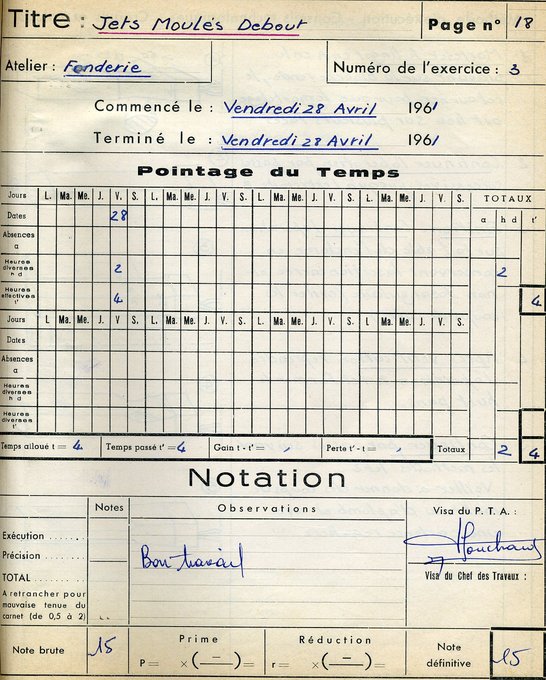 Titre : Jets Moulés Debout Page n° 18
Atelier : Fonderie Numéro de l'exercice : 3
Commencé le : Vendredi 28 Avril 1961
Terminé le : Vendredi 28 Avril 1961
Pointage du Temps
Jours L. Ma. Me. J. V. S. L. Ma. Me. J. V. S. L. Ma. Me. J. V. S. L. Ma. Me. J. V. S. TOTAUX
Dates 28 a h d t'
Absences
a
Heures
diverses 2 2
h d
Heures
effectives 4 4
t'
Jours L. Ma. Me. J. V S. L. Ma. Me. J. V. S. L. Ma. Me. J. V. S. L. Ma. Me. J. V. S.
Dates
Absences
a
Heures
diverses
h d
Heures
diverses
t'
Temps alloué t = 4 Temps passé t' = 4 Gain t - t' = Perte t' - t = Totaux 2 4
Notation
Notes Observations Visa du P. T. A. :
Exécution
Précision Bon travail
TOTAL Visa du Chef des Travaux :
A retrancher pour
mauvaise tenue du
carnet (de 0,5 à 2)
Note brute 15 Prime Réduction Note
P = ×( — )= r = ×( — )= définitive 15